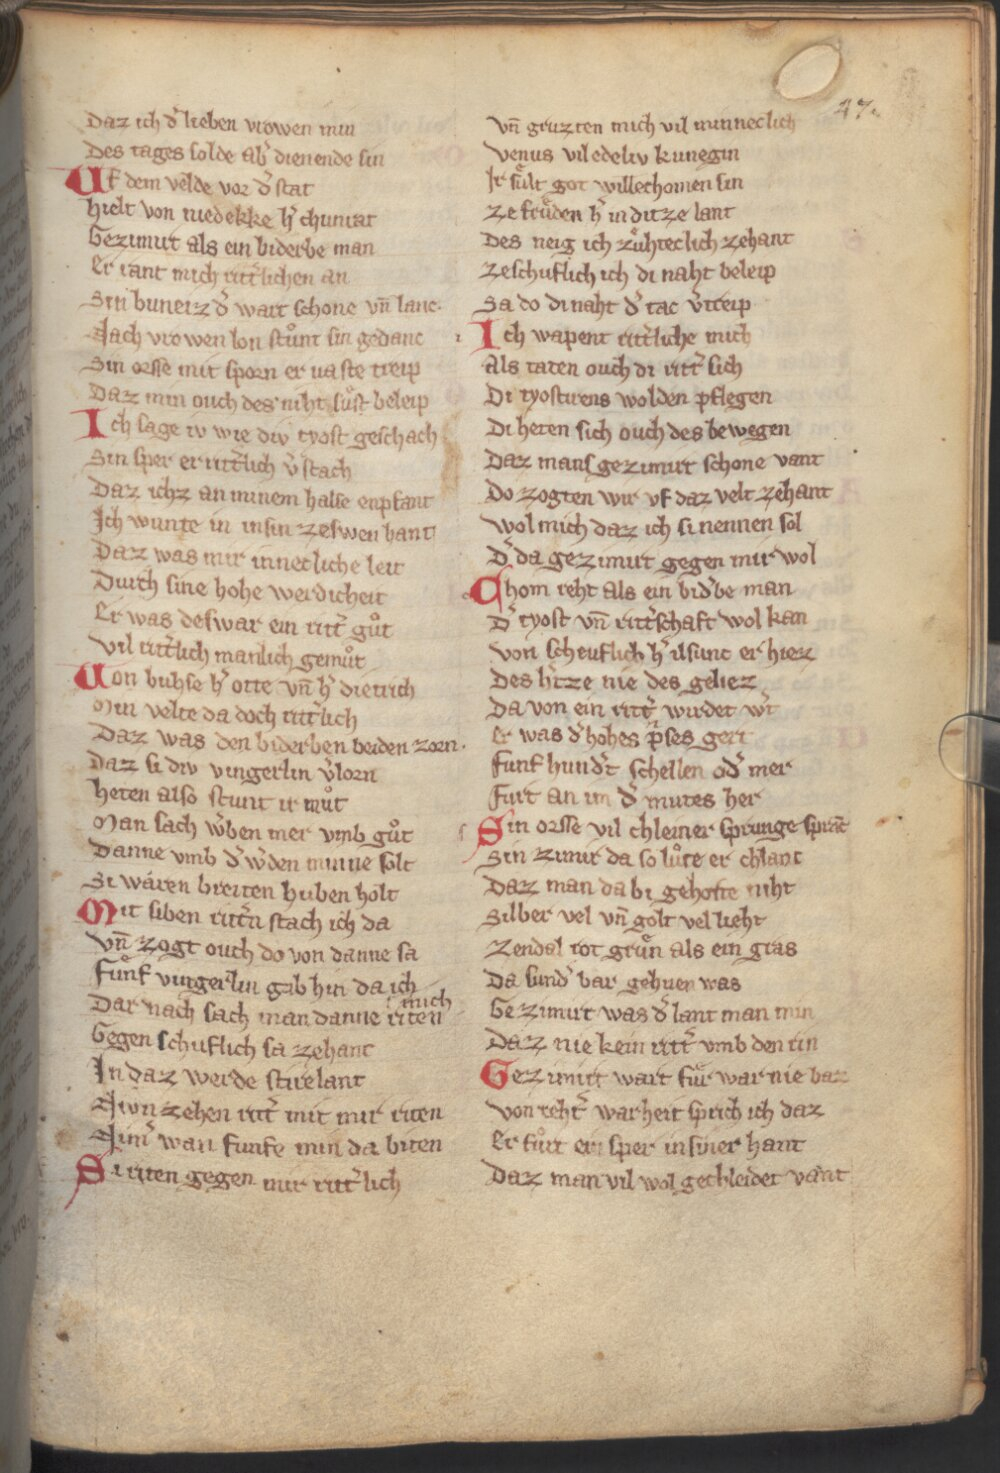 47.
Daz ich d͛ lieben vrowen min
Des tages solde ab͛ dienende sin
Uf dem velde vor d͛ stat
hielt von niedekke h͛ chunrat
Gezimirt als ein biderbe man
Er rant mich ritt͛lichen an
Sin buneiz d͛ wart schone vn̄ lanc.
Nach vrowen lon stůnt sin gedanc
Sin orsse mit sporn er vaste treip
Daz min ouch des niht sůst beleip
Ich sage iv wie div tyost geschach
Sin sper er ritt͛lich v͛stach
Daz ichz an minem halse enpfant
Ich wunte in in sin zeswen hant
Daz was mir innecliche leit
Durch sine hohe werdicheit
Er was deswar ein ritt͛ gůt
Vil ritt͛lich manlich gemůt
Von buhse h͛ otte vn̄ h͛ dietrich
Min velte da doch ritt͛lich
Daz was den biderben beiden zorn.
Daz si div vingerlin v͛lorn
heten also stunt ir můt
Man sach w͛ben mer vmb gůt
Danne vmb d͛ w͛den minne solt
Si wáren breiten huben holt
Mit siben ritt͛n stach ich da
Vn̄ zogt ouch do von danne sa
Fůnf vingerlin gab hin da ich
Dar nach sach man danne riten mich
Gegen schuflich sa zehant
In daz werde stirelant
Niwn zehen ritt͛ mit mir riten
Nim͛ wan funfe min da biten
Si riten gegen mir ritt͛lich
Vn̄ gruzten mich vil minneclich
Venus vil edeliv kunegin
Ir sůlt got willechomen sin
Ze frůden h͛ in ditze lant
Des neig ich zůhteclich zehant
Zeschuflich ich di naht beleip
Sa do di naht d͛ tac v͛treip
Ich wapent ritt͛liche mich
Als taten ouch di ritt͛ sich
Di tyostirens wolden pflegen
Di heten sich ouch des bewegen
Daz mans gezimirt schone vant
Do zogten wir vf daz velt zehant
Wol mich daz ich si nennen sol
D͛ da gezimirt gegen mir wol
Chom reht als ein bid͛be man
D͛ tyost vn̄ ritt͛schaft wol kan
Von scheuflich h͛ ilsunc er hiez
Des h͛tze nie des geliez
Da von ein ritt͛ wirdet w͛t
Er was d͛ hohes p͛ses gert
Funf hund͛t schellen od͛ mer
Furt an im d͛ mutes her
Sin orsse vil chleiner sprunge spranc
Sin zimir da so lůte er chlanc
Daz man da bi gehorte niht
Silber vel vn̄ golt vel lieht
Zendal rot grůn als ein gras
Da bund͛ bar gehuen was
Gezimirt was d͛ lant man min
Daz nie kein ritt͛ vmb den rin
Gezimirt wart fůr war nie baz
Von reht͛ warheit sprich ich daz
Er fůrt ein sper in siner hant
Daz man vil wol gechleidet vant